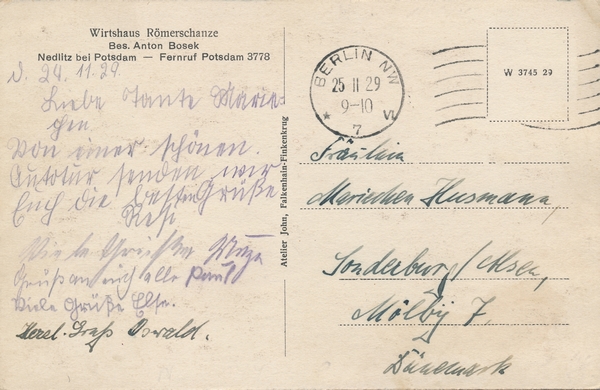 Wirtshaus Römerschanze
Bes. Anton Bosek
Nedlitz bei Potsdam — Fernruf Potsdam 3778
d. 24.11.29.
Liebe Tante Marie-
chen
Von einer schönen
Autotur senden wir
Euch die besten Grüße
Resi
Viele Grüße
Gruß an euch alle Paul
Viele Grüße Else.
Herzl. Gruß Oswald.
Atelier John, Falkenhain-Finkenkrug
BERLIN NW
25 11 29
9–10 V
* 7
W 3745 29
Fräulein
Mariechen Husmann
Sonderburg/Alsen,
Mölby 7,
Dänemark